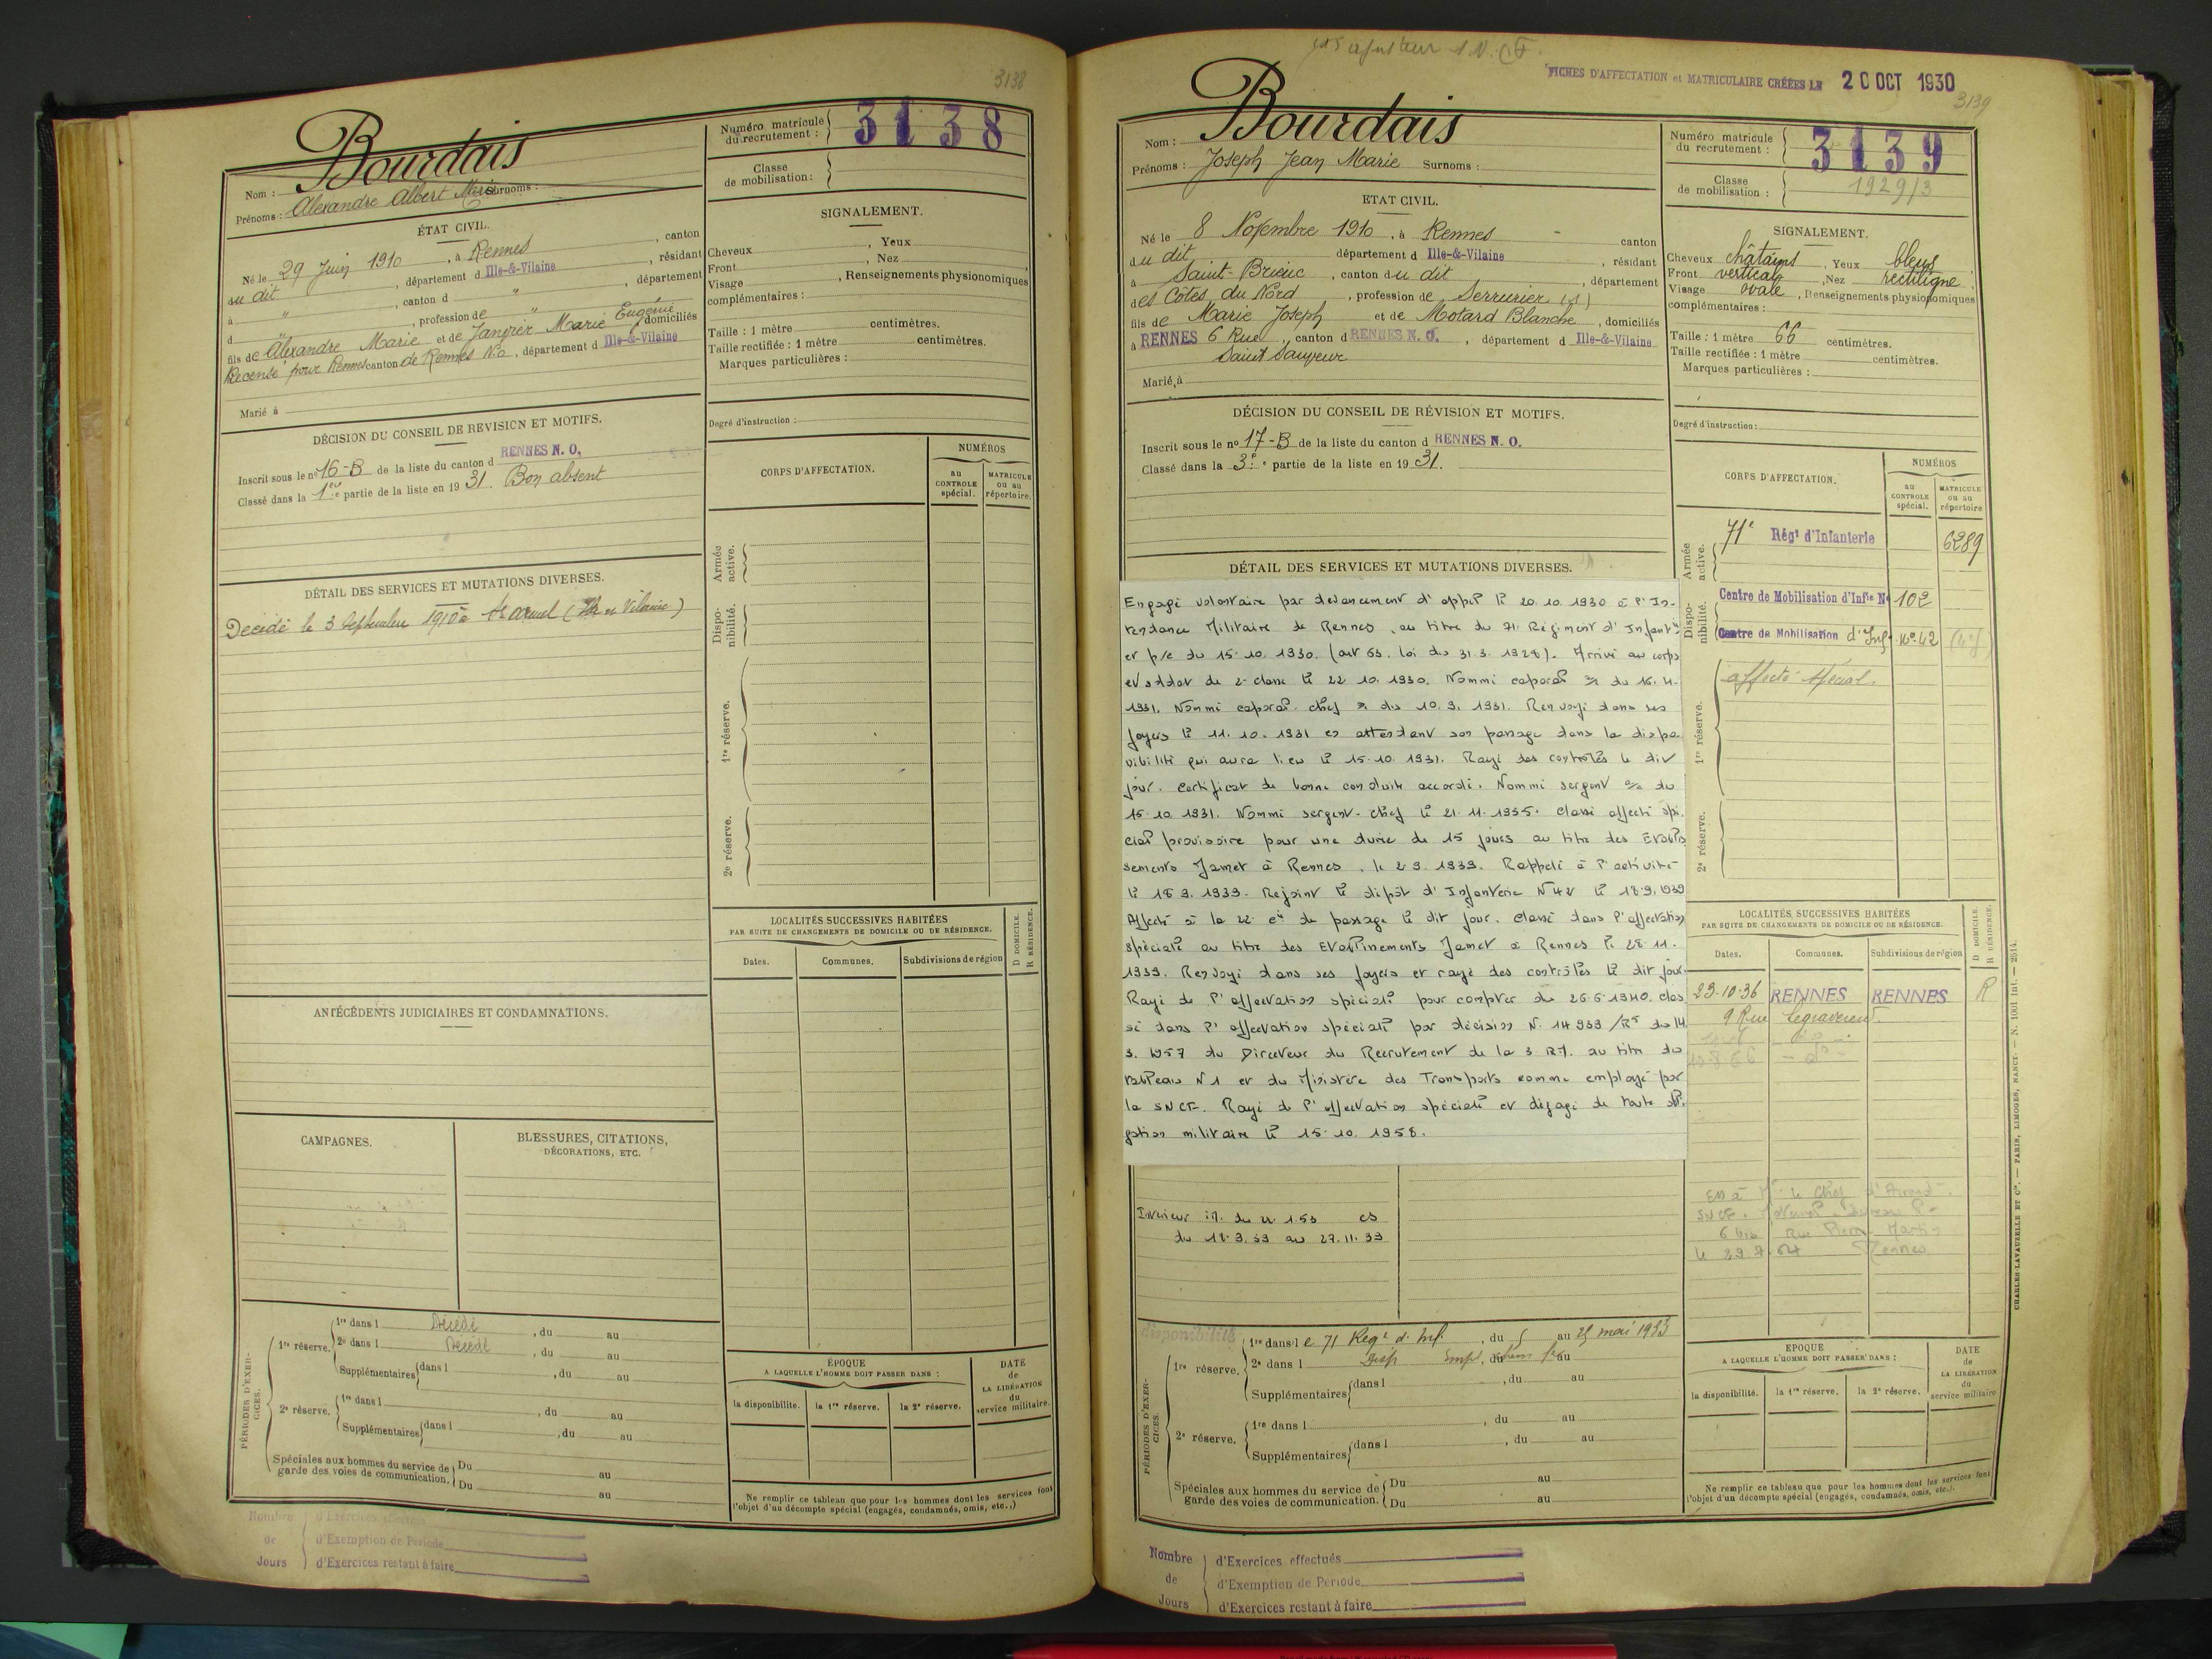 3138
Bourdais
Nom :
Prénoms : Alexandre Albert Marie Surnoms :
Numéro matricule du recrutement : 3138
Classe de mobilisation :
ÉTAT CIVIL.
Né le 29 Juin 1910, à Rennes, canton
du dit, département d Ille-&-Vilaine, résidant
à ", canton d ", département
d ", profession de "
fils de Alexandre Marie et de Janvier Marie Eugénie domiciliés
Recensé pour Rennes canton de Rennes N.O, département d Ille-&-Vilaine
Marié à
SIGNALEMENT.
Cheveux , Yeux
Front , Nez
Visage , Renseignements physionomiques
complémentaires :
Taille : 1 mètre centimètres.
Taille rectifiée : 1 mètre centimètres.
Marques particulières :
Degré d'instruction :
DÉCISION DU CONSEIL DE REVISION ET MOTIFS.
Inscrit sous le nº 16-B de la liste du canton d RENNES N. O.
Classé dans la 1ère partie de la liste en 1931. Bon absent
CORPS D'AFFECTATION.
NUMÉROS
au CONTROLE spécial.
MATRICULE ou au répertoire.
Armée active.
Disponibilité.
1re réserve.
2e réserve.
DÉTAIL DES SERVICES ET MUTATIONS DIVERSES.
Décédé le 3 Septembre 1910 à (Ille et Vilaine)
ANTÉCÉDENTS JUDICIAIRES ET CONDAMNATIONS.
LOCALITÉS SUCCESSIVES HABITÉES
PAR SUITE DE CHANGEMENTS DE DOMICILE OU DE RÉSIDENCE.
D DOMICILE.
R RÉSIDENCE.
Dates. Communes. Subdivisions de région
CAMPAGNES.
BLESSURES, CITATIONS,
DÉCORATIONS, ETC.
PÉRIODES D'EXERCICES.
1re réserve. 1re dans l Décédé, du au
2e dans l Décédé, du au
Supplémentaires dans l , du au
2e réserve. 1re dans l , du au
Supplémentaires dans l , du au
Spéciales aux hommes du service de garde des voies de communication. Du au
Du au
ÉPOQUE
A LAQUELLE L'HOMME DOIT PASSER DANS :
la disponibilité. la 1re réserve. la 2e réserve.
DATE de LA LIBÉRATION du service militaire.
Ne remplir ce tableau que pour les hommes dont les services font
l'objet d'un décompte spécial (engagés, condamnés, omis, etc.,)
Nombre de Jours
d'Exercices effectués
d'Exemption de Période
d'Exercices restant à faire
ajusteur S.N.C.F.
FICHES D'AFFECTATION et MATRICULAIRE CRÉÉES LE 20 OCT 1930
3139
Nom : Bourdais
Prénoms : Joseph Jean Marie Surnoms :
Numéro matricule du recrutement : 3139
Classe de mobilisation : 1929/3
ETAT CIVIL.
Né le 8 Novembre 1910, à Rennes - canton
du dit département d Ille-&-Vilaine, résidant
à Saint-Brieuc, canton du dit, département
des Côtes du Nord, profession de Serrurier
fils de Marie Joseph et de Motard Blanche, domiciliés
à RENNES 6 Rue, canton d RENNES N. O., département d Ille-&-Vilaine
Saint Sauveur
Marié à
SIGNALEMENT.
Cheveux châtains, Yeux bleus
Front vertical, Nez rectiligne
Visage ovale, Renseignements physionomiques
complémentaires :
Taille : 1 mètre 66 centimètres.
Taille rectifiée : 1 mètre centimètres.
Marques particulières :
Degré d'instruction :
DÉCISION DU CONSEIL DE RÉVISION ET MOTIFS.
Inscrit sous le nº 17-B de la liste du canton d RENNES N. O.
Classé dans la 3e partie de la liste en 1931.
CORPS D'AFFECTATION.
NUMÉROS
au CONTROLE spécial.
MATRICULE ou au répertoire
Armée active.
71e Régt d'Infanterie 6289
Disponibilité.
Centre de Mobilisation d'Infie Nº 102
Centre de Mobilisation d'Inf. Nº 42
1re réserve.
affecté spécial.
2e réserve.
DÉTAIL DES SERVICES ET MUTATIONS DIVERSES.
Engagé volontaire par devancement d'appel le 20.10.1930 à l'In-
tendance Militaire de Rennes, au titre du 71. Régiment d'Infantie
et p/c du 15.10.1930. (art 63. loi du 31.3.1928). Arrivé au corps
et soldat de 2 classe le 22.10.1930. Nommé caporal du 16.4.
1931. Nommé caporal-chef du 10.9.1931. Renvoyé dans ses
foyers le 11.10.1931 en attendant son passage dans la dispo
nibilité qui aura lieu le 15.10.1931. Rayé des contrôles le dit
jour. certificat de bonne conduite accordé. Nommé sergent du
15.10.1931. Nommé sergent-chef le 21.11.1935. Classé affecté spé-
cial provisoire pour une durée de 15 jours au titre des Etablis
sements Jamet à Rennes, le 2.9.1939. Rappelé à l'activité
le 18.9.1939. Rejoint le dépôt d'Infanterie N 42 le 18.9.1939
Affecté à la 22. Cie de passage le dit jour. Classé dans l'affectation
spéciale au titre des Etablissements Jamet à Rennes le 28.11.
1939. Renvoyé dans ses foyers et rayé des contrôles le dit jour.
Rayé de l'affectation spéciale pour compter du 26.6.1940. clas
sé dans l'affectation spéciale par décision N. 14939 du 14
3.1957 du Directeur du Recrutement de la 3 R.M. au titre du
tableau N 1 et du Ministère des Transports comme employé par
la SNCF. Rayé de l'affectation spéciale et dégagé de toute obli
gation militaire le 15.10.1958.
LOCALITÉS SUCCESSIVES HABITÉES
PAR SUITE DE CHANGEMENTS DE DOMICILE OU DE RÉSIDENCE.
D DOMICILE.
R RÉSIDENCE.
Dates. Communes. Subdivisions de région
23-10-36 RENNES RENNES R
9 Rue Legraverend.
Intérieur
du 18.9.39 au 27.11.39
SNCF.
6 bis Rue Pierre Martin
Rennes
PÉRIODES D'EXERCICES.
disponibilité
1re réserve. 1re dans le 71 Regt d'Inf., du 5 au 25 mai 1933
2e dans l Disp , du au
Supplémentaires dans l , du au
2e réserve. 1re dans l , du au
Supplémentaires dans l , du au
Spéciales aux hommes du service de garde des voies de communication. Du au
Du au
EPOQUE
A LAQUELLE L'HOMME DOIT PASSER DANS :
la disponibilité. la 1re réserve. la 2e réserve.
DATE de LA LIBÉRATION du service militaire
Ne remplir ce tableau que pour les hommes dont les services font
l'objet d'un décompte spécial (engagés, condamnés, omis, etc.).
CHARLES-LAVAUZELLE ET Cie. — PARIS, LIMOGES, NANCY. — N. 1001 int. — 2514.
Nombre de Jours
d'Exercices effectués
d'Exemption de Période
d'Exercices restant à faire